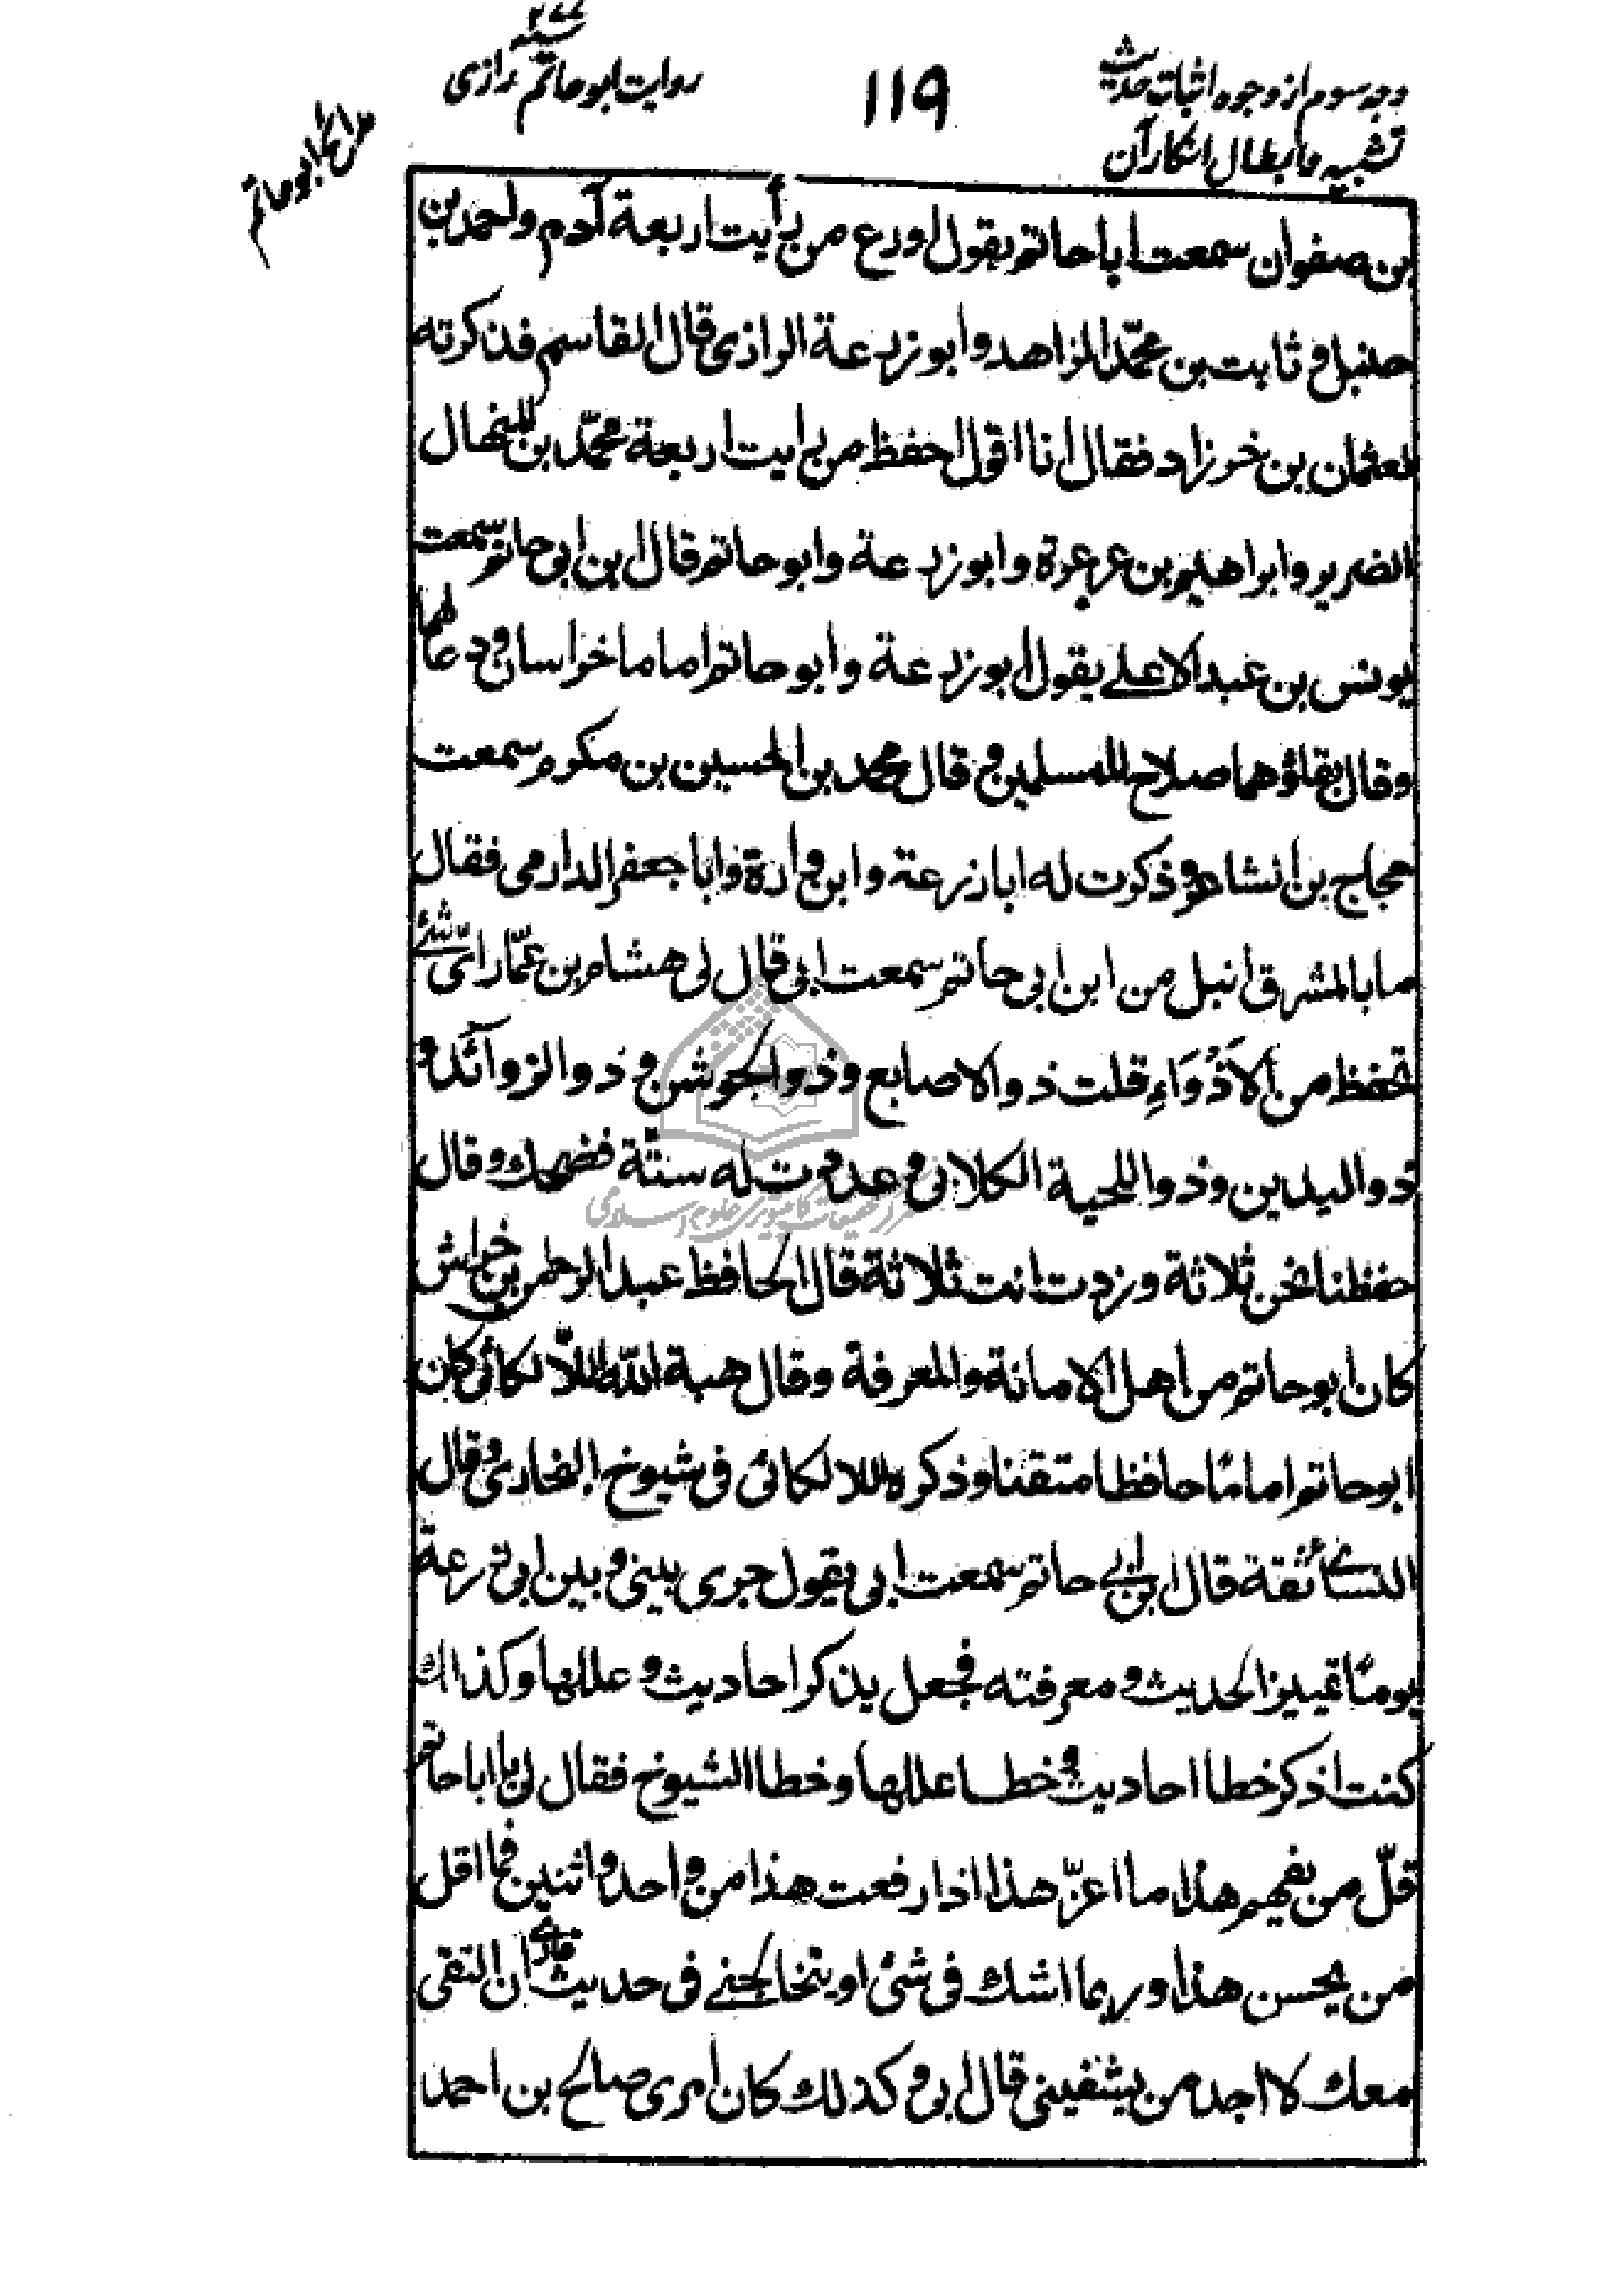 وجه سوم از وجوه اثبات حدیث
تشبیه و ابطال انکار آن
۱۱۹
روایت ابو حاتم رازی
سنه ۲۷۷
مدائح ابو حاتم
بن صفوان سمعت ابا حاتم يقول اورع من رأيت اربعة آدم واحمد بن
حنبل و ثابت بن محمّد الزاهد وابو زرعة الرازى قال القاسم فذكرته
لعثمان بن خرزاد فقال انا اقول احفظ من رايت اربعة محمّد بن المنهال
الضرير وابراهيم بن عرعرة وابو زرعة وابو حاتم قال ابن ابى حاتم سمعت
يونس بن عبد الاعلى يقول ابو زرعة وابو حاتم اماما خراسان ودعا لهما
وقال بقاؤهما صلاح للمسلمين و قال محمد بن الحسين بن مكرم سمعت
حجاج بن الشاعر وذكرت له ابا زرعة وابن وارة وابا جعفر الدارمى فقال
ما بالمشرق انبل من ابن ابى حاتم سمعت ابى قال لى هشام بن عمّار اىّ شئ
تحفظ من الاَذْوَاءِ قلت ذو الاصابع وذو الجوشن و ذو الزوائد و
ذو اليدين وذو اللحية الكلابى و عددت له ستّة فضحك وقال
حفظنا نحن ثلاثة وزدت انت ثلاثة قال الحافظ عبد الرحمن بن خراش
كان ابو حاتم من اهل الامانة والمعرفة وقال هبة اللّٰه اللّالكائى كان
ابو حاتم امامًا حافظا متقنا وذكره اللالكائى فى شيوخ البخارى وقال
النسائ ثقة قال ابن ابى حاتم سمعت ابى يقول جرى بينى و بين ابى زرعة
يومًا تمييز الحديث و معرفته فجعل يذكر احاديث و عللها وكذلك
كنت اذكر خطا احاديث و خطا عللها وخطا الشيوخ فقال لى يا ابا حاتم
قلّ من يفهم هذا ما اعزّ هذا اذا رفعت هذا من واحد واثنين فما اقل
من يحسن هذا وربما اشك فى شئ او يتخالجنے فى حديث فالى ان التقى
معك لا اجد من يشفينى قال ابى وكذلك كان امرى صالح بن احمد